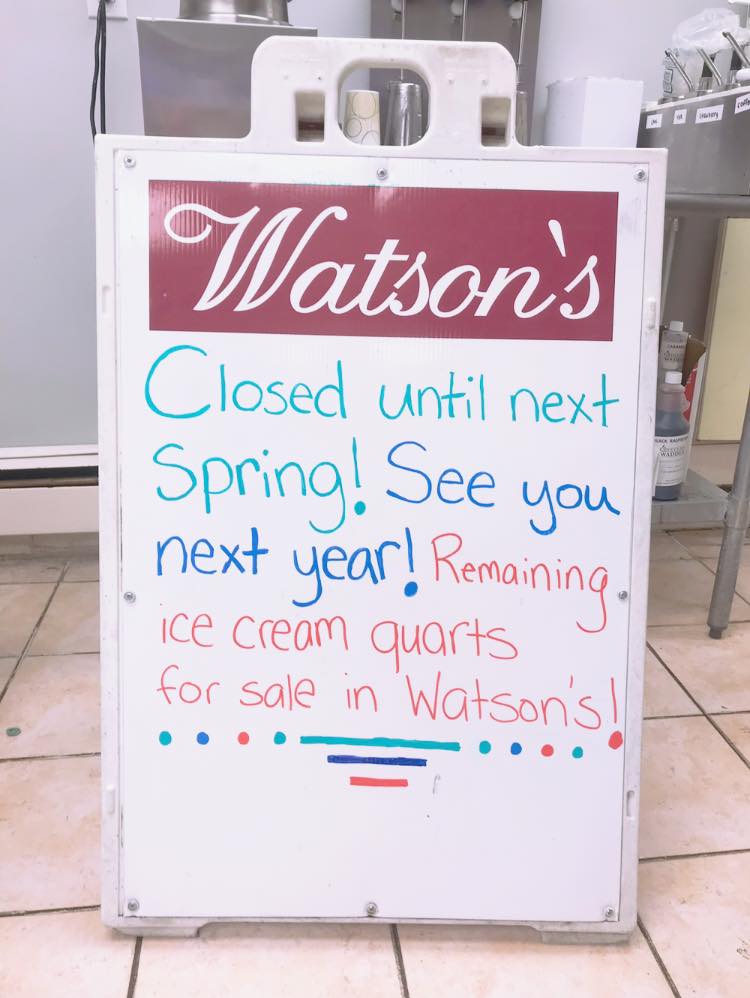 Watson's
Closed until next
Spring! See you
next year! Remaining
ice cream quarts
for sale in Watson's!
BLACK RASPBERRY